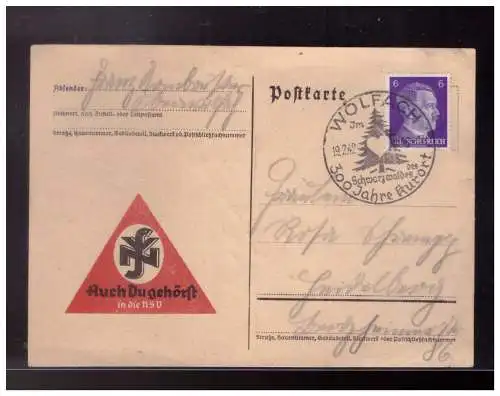 Absender: Franz
Wohnort, auch Zustell- oder Leitpostamt
Straße, Hausnummer, Gebäudeteil, Stockwerk od. Postschließfachnummer
Auch Du gehörst
in die NSV
Postkarte
WOLFACH
Im
19.2.42
des
Schwarzwaldes
300 Jahre Kurort
6 6
Fräulein
Rosa
Heidelberg
86
Straße, Hausnummer, Gebäudeteil, Stockwerk oder Postschließfachnummer